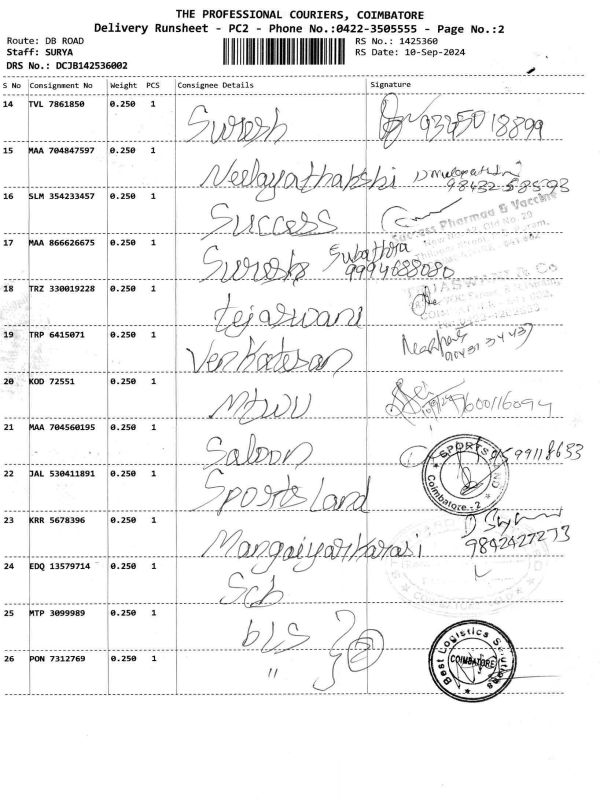 THE PROFESSIONAL COURIERS, COIMBATORE
Delivery Runsheet - PC2 - Phone No.:0422-3505555 - Page No.:2
Route: DB ROAD RS No.: 1425360
Staff: SURYA RS Date: 10-Sep-2024
DRS No.: DCJB142536002
S No Consignment No Weight PCS Consignee Details Signature
14 TVL 7861850 0.250 1 Suresh
15 MAA 704847597 0.250 1 Neelayathakshi
98432 58593
16 SLM 354233457 0.250 1 Success
Success Pharmaa & Vaccine
17 MAA 866626675 0.250 1 Suresh Subathra
9994688080
18 TRZ 330019228 0.250 1 tejaswani
& Co
19 TRP 6415071 0.250 1 Venkatesan
20 KOD 72551 0.250 1 7600116094
21 MAA 704560195 0.250 1 Saloon
22 JAL 530411891 0.250 1 Sports Land
SPORTS
Coimbatore-2
23 KRR 5678396 0.250 1 Mangaiyarkarasi
9842427273
24 EDQ 13579714 0.250 1 Scb
25 MTP 3099989 0.250 1 bLS
26 PON 7312769 0.250 1 " 2
Best Logistics Solutions
COIMBATORE